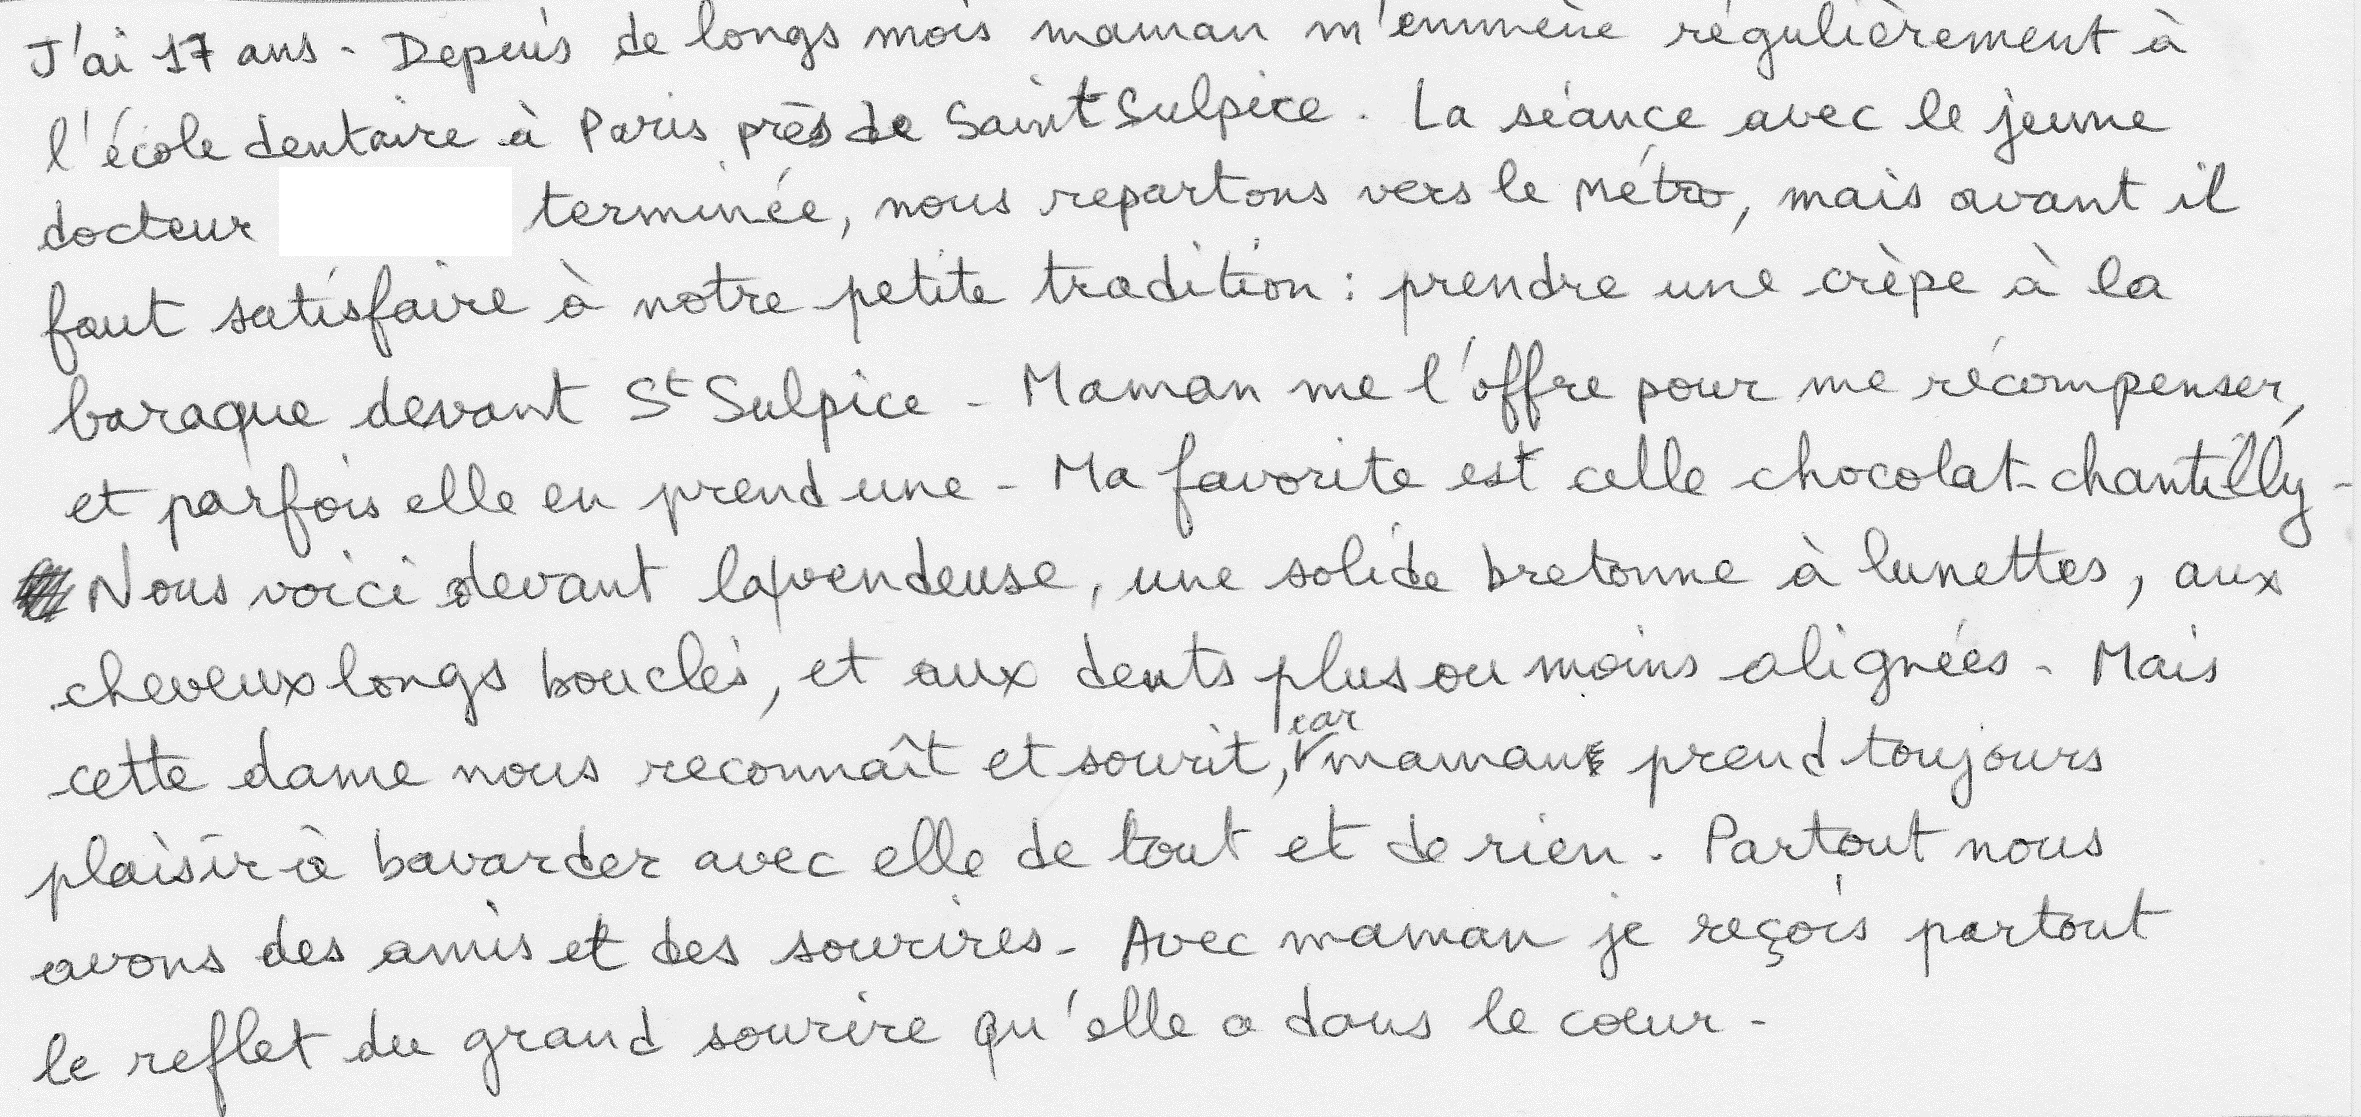 J'ai 17 ans - Depuis de longs mois maman m'emmène régulièrement à
l'école dentaire à Paris près de Saint Sulpice. La séance avec le jeune
docteur terminée, nous repartons vers le Métro, mais avant il
faut satisfaire à notre petite tradition : prendre une crèpe à la
baraque devant St Sulpice - Maman me l'offre pour me récompenser,
et parfois elle en prend une - Ma favorite est celle chocolat-chantilly -
Nous voici devant la vendeuse, une solide bretonne à lunettes, aux
cheveux longs bouclés, et aux dents plus ou moins alignées - Mais
cette dame nous reconnaît et sourit, car maman prend toujours
plaisir à bavarder avec elle de tout et de rien. Partout nous
avons des amis et des sourires - Avec maman je reçois partout
le reflet du grand sourire qu'elle a dans le cœur -